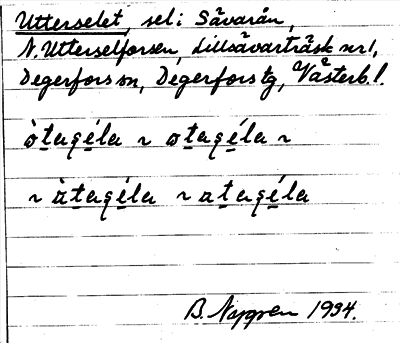 Utterselet, sel i Sävarån,
N. Utterselforsen, Lillsävarträsk nr 1,
Degerfors sn, Degerfors tg, Västerb. l.
òtagéla ~ otagéla ~
~ àtagéla ~ atagéla
B. Nygren 1934.